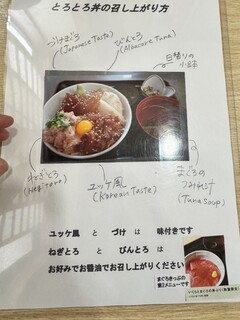 とろとろ丼の召し上がり方
づけまぐろ
(Japanese Taste)
びんとろ
(Albacore Tuna)
日替りの
小鉢
ねぎとろ
(Negitoro)
ユッケ風
(Korean Taste)
まぐろの
つみれ汁
(Tuna Soup)
ユッケ風 と づけ は 味付きです
ねぎとろ と びんとろ は
お好みでお醤油でお召し上がりください
まぐろきっぷの
第2メニューです